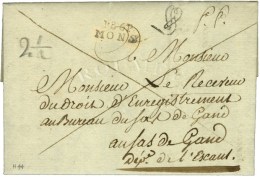 P.86.P.
MONS
P.P.
2 1/2
Monsieur
Monsieur Le Receveur
du droit d'Enregistrement
au Bureau du sas de Gand
au sas de Gand
Dép.t de l'Escaut